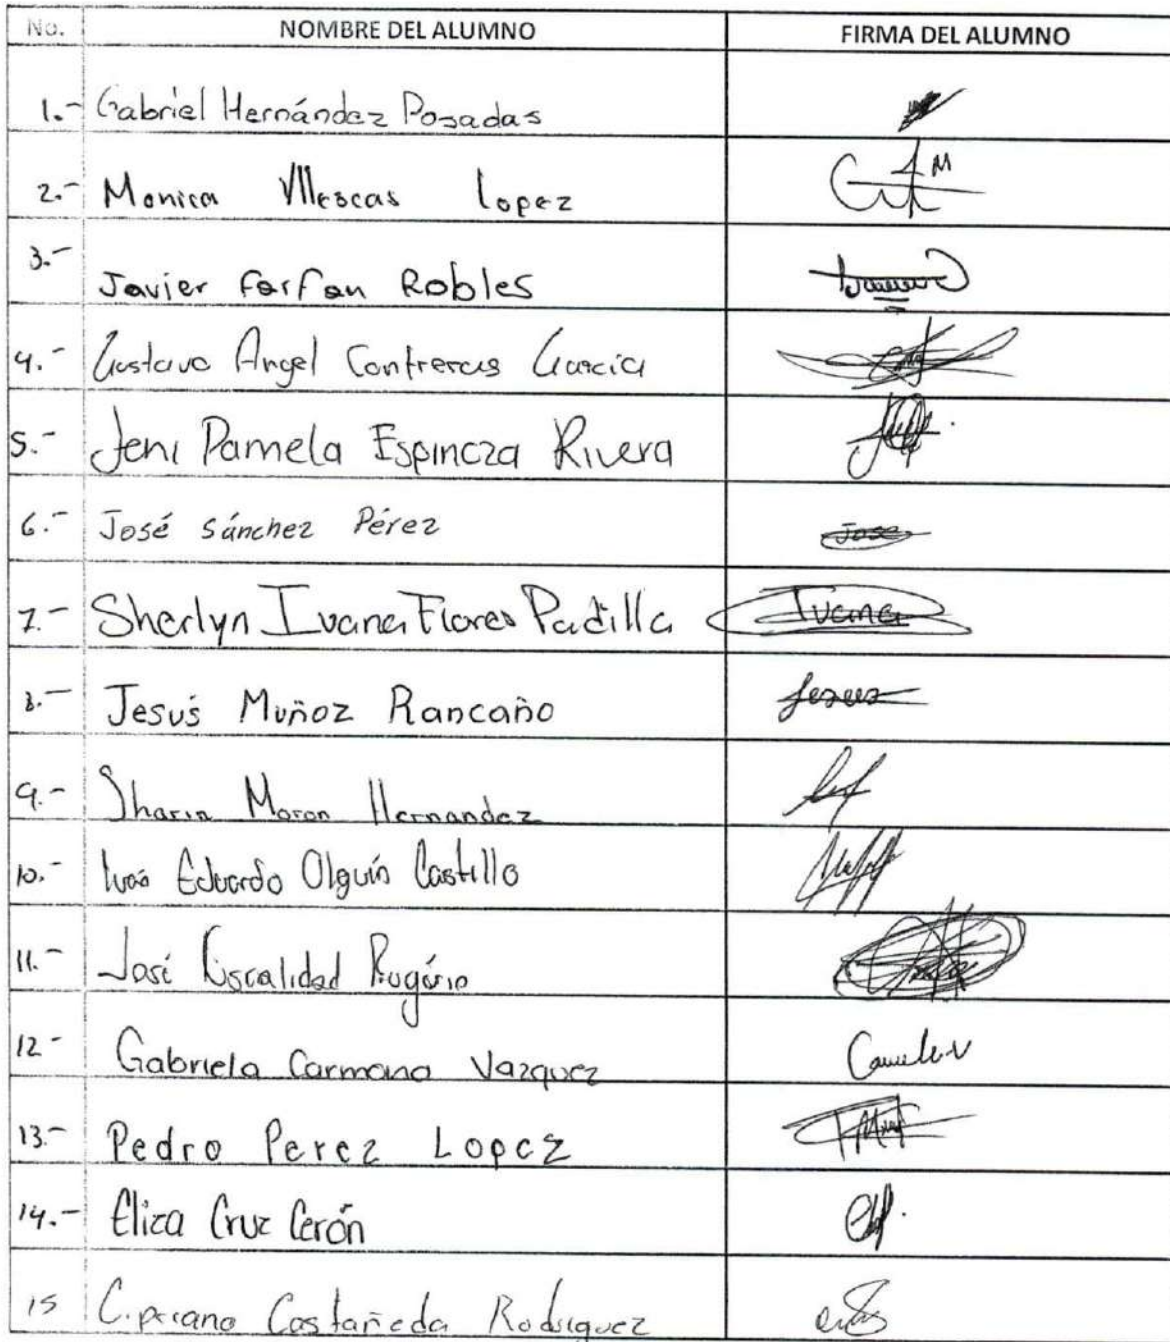 No. NOMBRE DEL ALUMNO FIRMA DEL ALUMNO
1.- Gabriel Hernández Posadas
2.- Monica Villescas Lopez
3.- Javier Farfan Robles
4.- Gustavo Angel Contreras Garcia
5.- Jeni Pamela Espinoza Rivera
6.- José Sánchez Pérez Jose
7.- Sherlyn Ivana Flores Padilla Ivana
8.- Jesús Muñoz Rancaño Jesus
9.- Sharin Moron Hernandez
10.- Ivan Eduardo Olguín Castillo
11.- José
12- Gabriela Carmona Vazquez
13.- Pedro Perez Lopez
14.- Eliza Cruz Cerón
15 Cipriano Castañeda Rodriguez